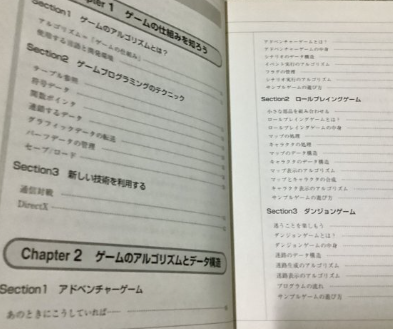 Chapter 1 ゲームの仕組みを知ろう
Section1 ゲームのアルゴリズムとは?
アルゴリズム=「ゲームの仕組み」
使用する言語と開発環境
Section2 ゲームプログラミングのテクニック
テーブル参照
符号データ
関数ポインタ
連鎖するデータ
グラフィックデータの転送
パーツデータの管理
セーブ/ロード
Section3 新しい技術を利用する
通信対戦
DirectX
Chapter 2 ゲームのアルゴリズムとデータ構造
Section1 アドベンチャーゲーム
あのときにこうしていれば……
アドベンチャーゲームとは?
アドベンチャーゲームの中身
シナリオのデータ構造
イベント実行のアルゴリズム
フラグの管理
シナリオ実行のアルゴリズム
サンプルゲームの遊び方
Section2 ロールプレイングゲーム
小さな部品を組み合わせる
ロールプレイングゲームとは?
ロールプレイングゲームの中身
マップの処理
キャラクタの処理
マップのデータ構造
キャラクタのデータ構造
マップ表示のアルゴリズム
マップとキャラクタの合成
キャラクタ表示のアルゴリズム
サンプルゲームの遊び方
Section3 ダンジョンゲーム
迷うことを楽しもう
ダンジョンゲームとは?
ダンジョンゲームの中身
迷路のデータ構造
迷路生成のアルゴリズム
迷路表示のアルゴリズム
プログラムの流れ
サンプルゲームの遊び方